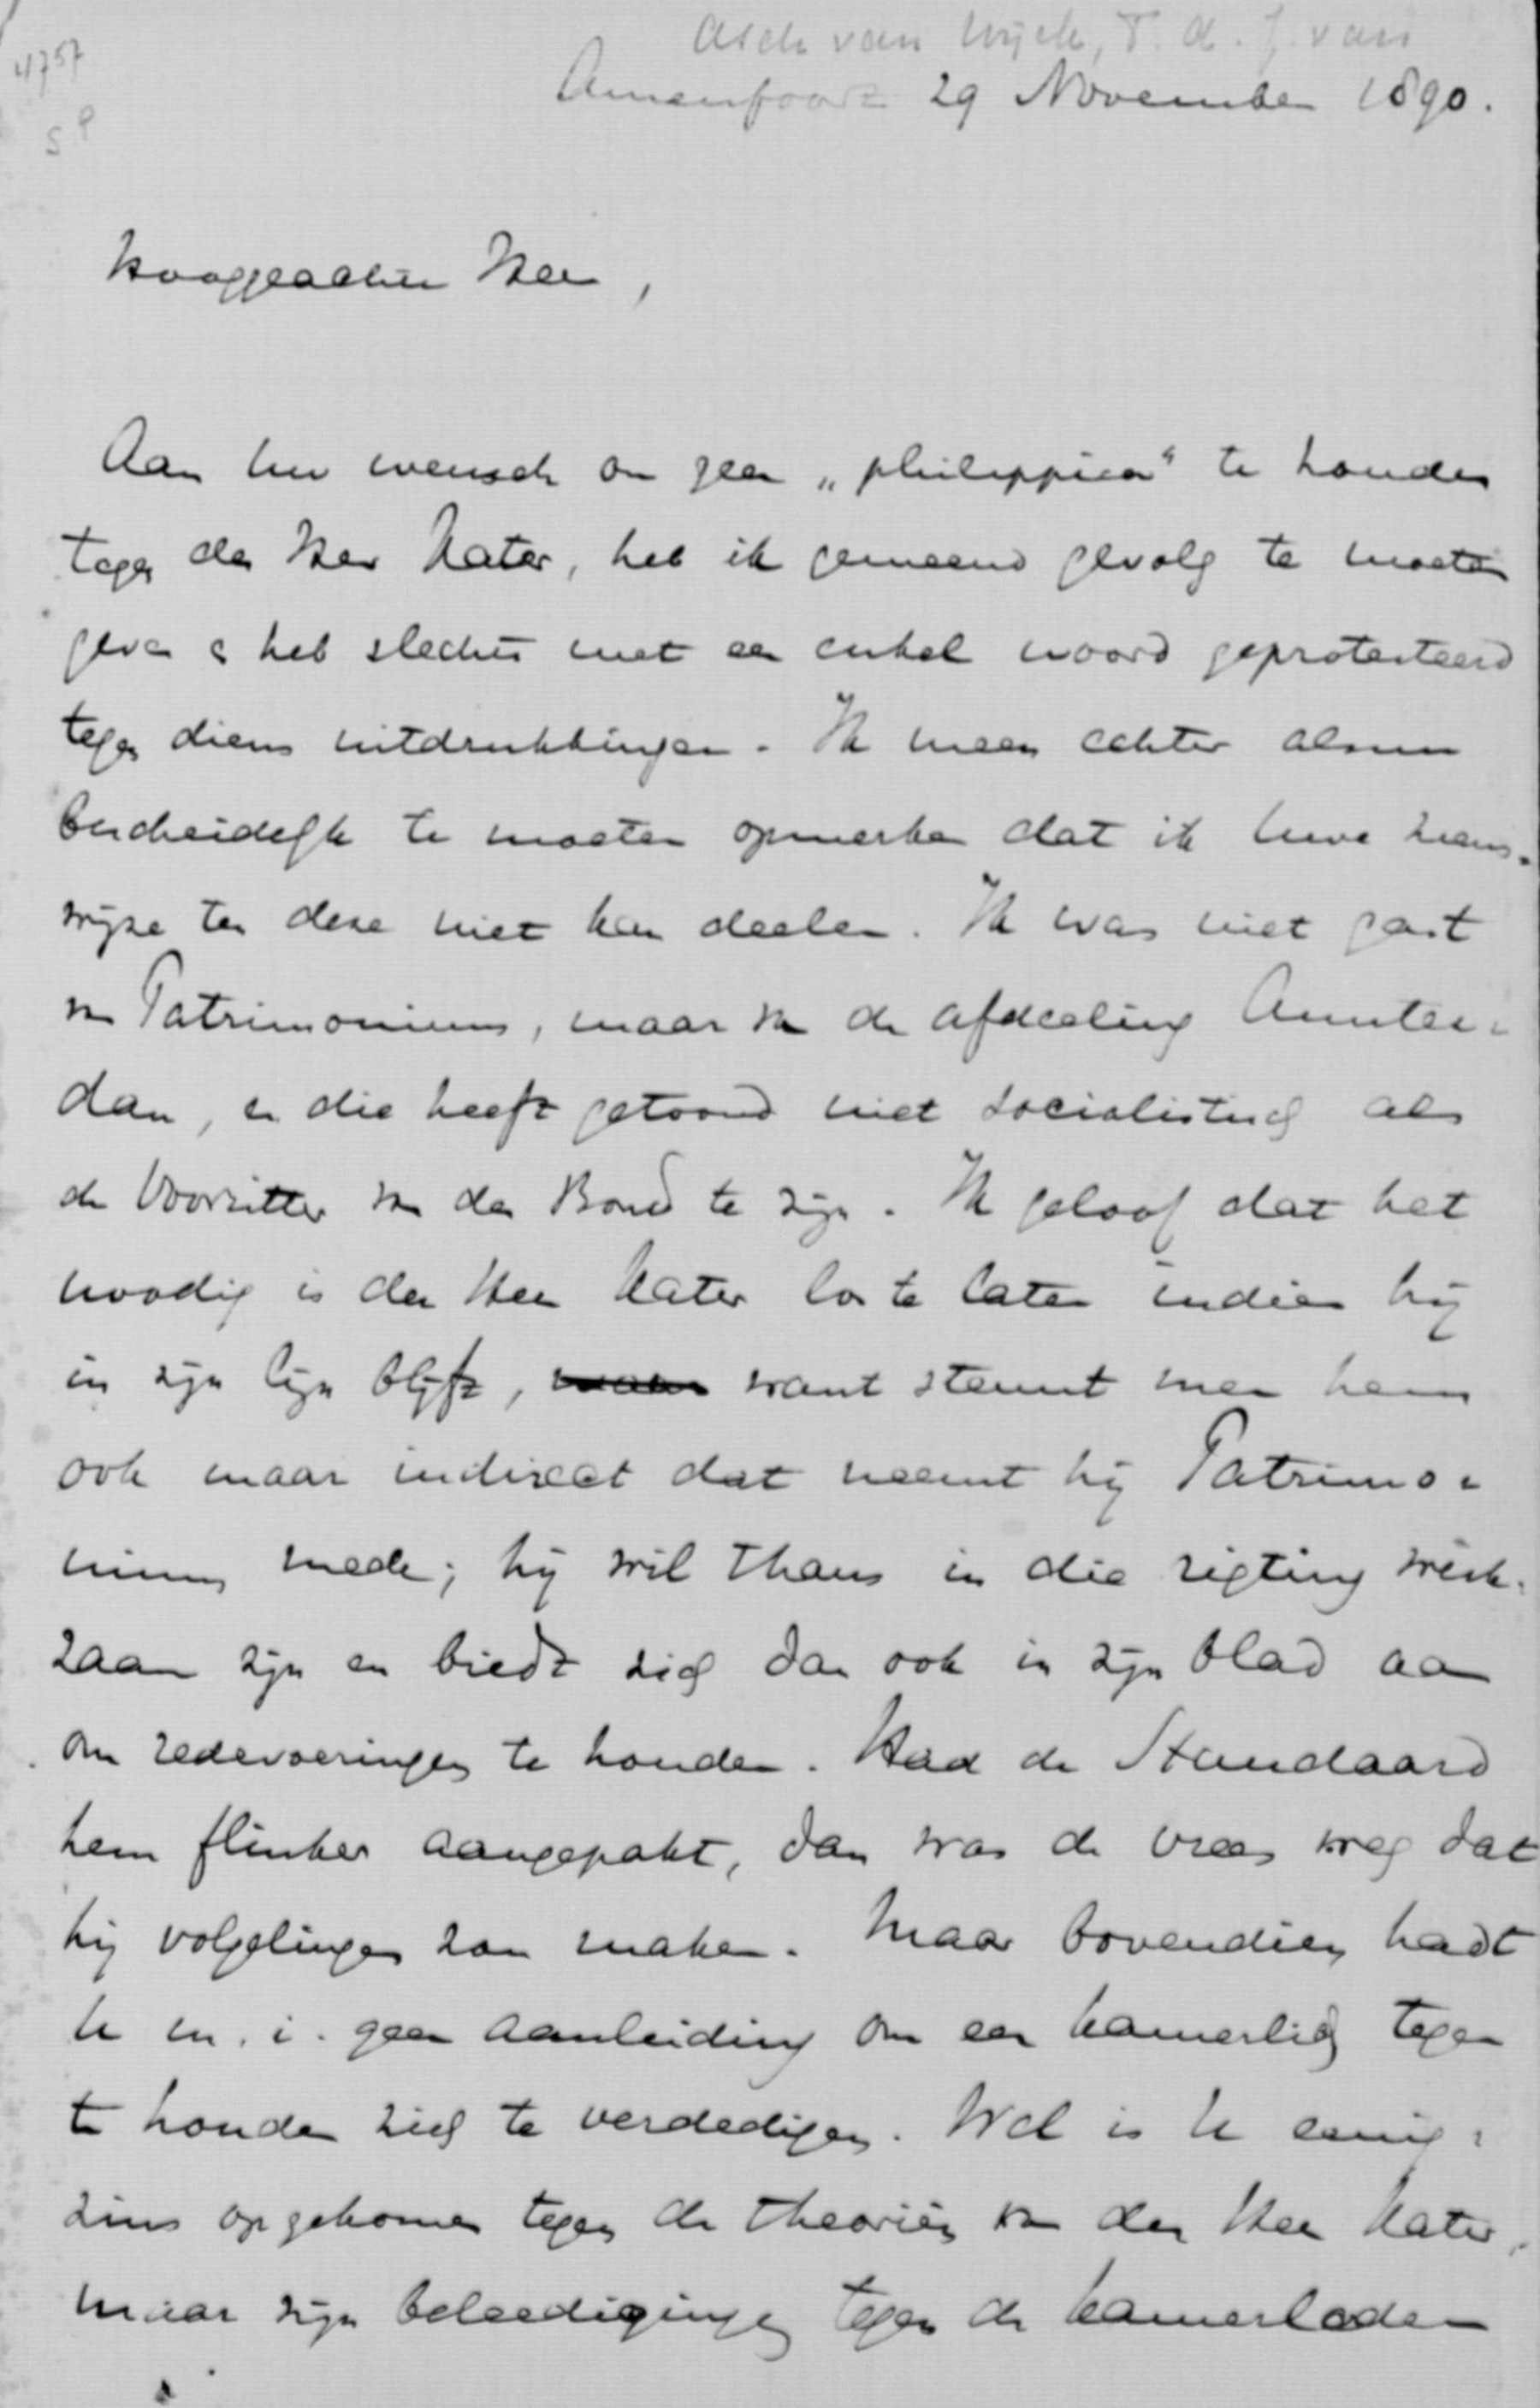 Asch van Wijck, T. A. J. van
4757
Amersfoort 29 November 1890.
Hooggeachte Heer,
Aan Uw wensch om geen „philippica" te houden
tegen den Heer Kater, heb ik gemeend gevolg te moeten
geven & heb slechts met een enkel woord geprotesteerd
tegen diens uitdrukkingen. Ik meen echter
bescheidelijk te moeten opmerken dat ik Uwe ziens-
wijze ten deze niet kan deelen. Ik was niet gast
van Patrimonium, maar van de afdeeling Amster-
dam, en die heeft getoond niet socialistisch als
de Voorzitter van den Bond te zijn. Ik geloof dat het
noodig is den Heer Kater los te laten indien hij
in zijn lijn blijft, want steunt men hem
ook maar indirect dat neemt hij Patrimo-
nium mede; hij wil thans in die rigting werk-
zaam zijn en biedt zich dan ook in zijn blad aan
om redevoeringen te houden. Had de Standaard
hem flinker aangepakt, dan was de vrees weg dat
hij volgelingen zou maken. Maar bovendien hadt
U m. i. geen aanleiding om een kamerlid tegen
te houden zich te verdedigen. Wel is U eenig-
zins opgekomen tegen de theoriën van den Heer Kater,
maar zijn beleedigingen tegen de kamerleden